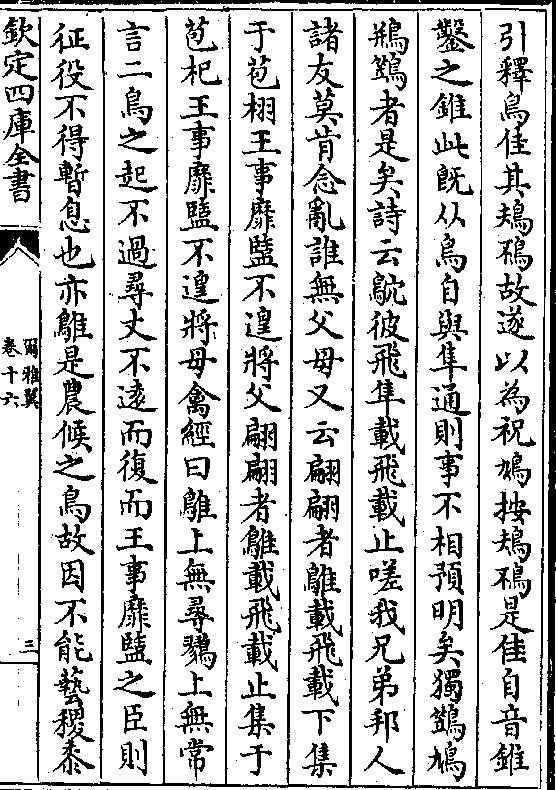 引釋鳥隹其鳺鴀故遂以為祝鳩按鳺鴀是隹自音錐
鑿之錐此既从鳥自與隼通則事不相預明矣獨䳕鳩
鵧䳕者是矣詩云鴥彼飛隼載飛載止嗟我兄弟邦人
諸友莫肯念亂誰無父母又云翩翩者鵻載飛載下集
于苞栩王事靡盬不遑將父翩翩者鵻載飛載止集于
苞杞王事靡盬不遑將母禽經曰鵻上無尋鷚上無常
言二鳥之起不過尋丈不逺而復而王事靡盬之臣則
征役不得暫息也亦鵻是農候之鳥故因不能藝稷黍
欽定四庫全書
爾雅翼
卷十六
三